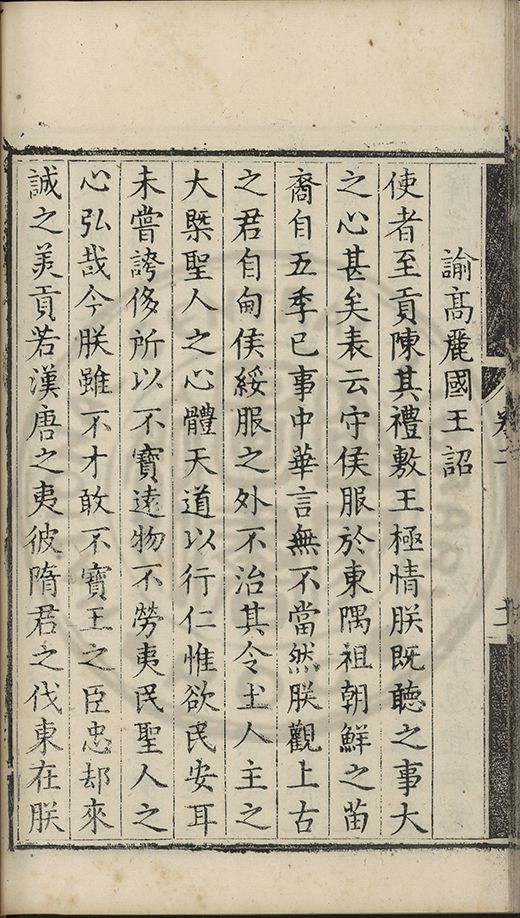 諭高麗國王詔
使者至貢陳其禮敷王極情朕既聽之事大
之心甚矣表云守侯服於東隅祖朝鮮之苗
裔自五季已事中華言無不當然朕觀上古
之君自甸侯綏服之外不治其令土人主之
大槩聖人之心體天道以行仁惟欲民安耳
未嘗誇侈所以不寶遠物不勞夷民聖人之
心弘哉今朕雖不才敢不寶王之臣忠却來
誠之羙貢若漢唐之夷彼隋君之伐東在朕
卷二